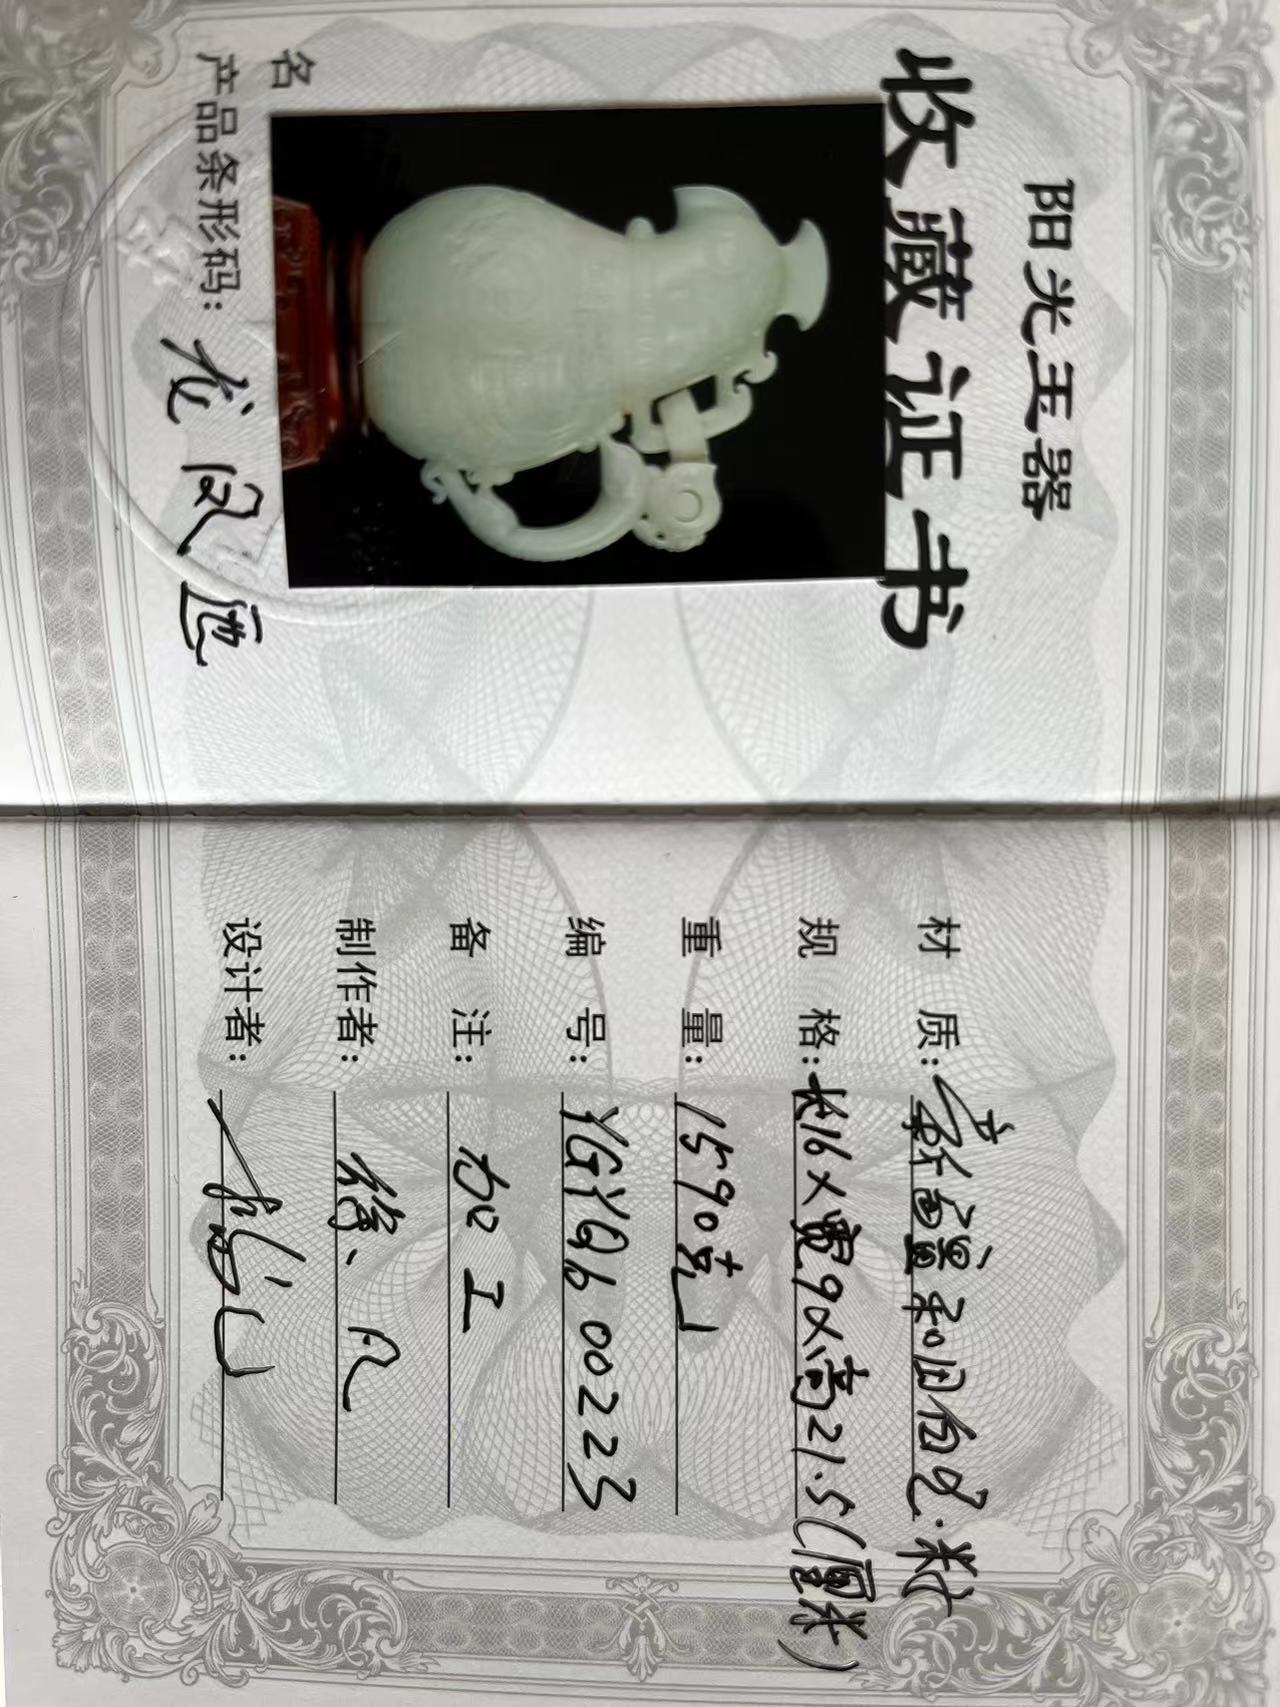 阳光玉器
收藏证书
名
产品条形码: 龙凤匜
材 质: 新疆和田白玉·籽
规 格: 长16×宽9×高21.5(厘米)
重 量: 1590克
编 号: YGYQ600223
备 注: 加工
制作者:
设计者: